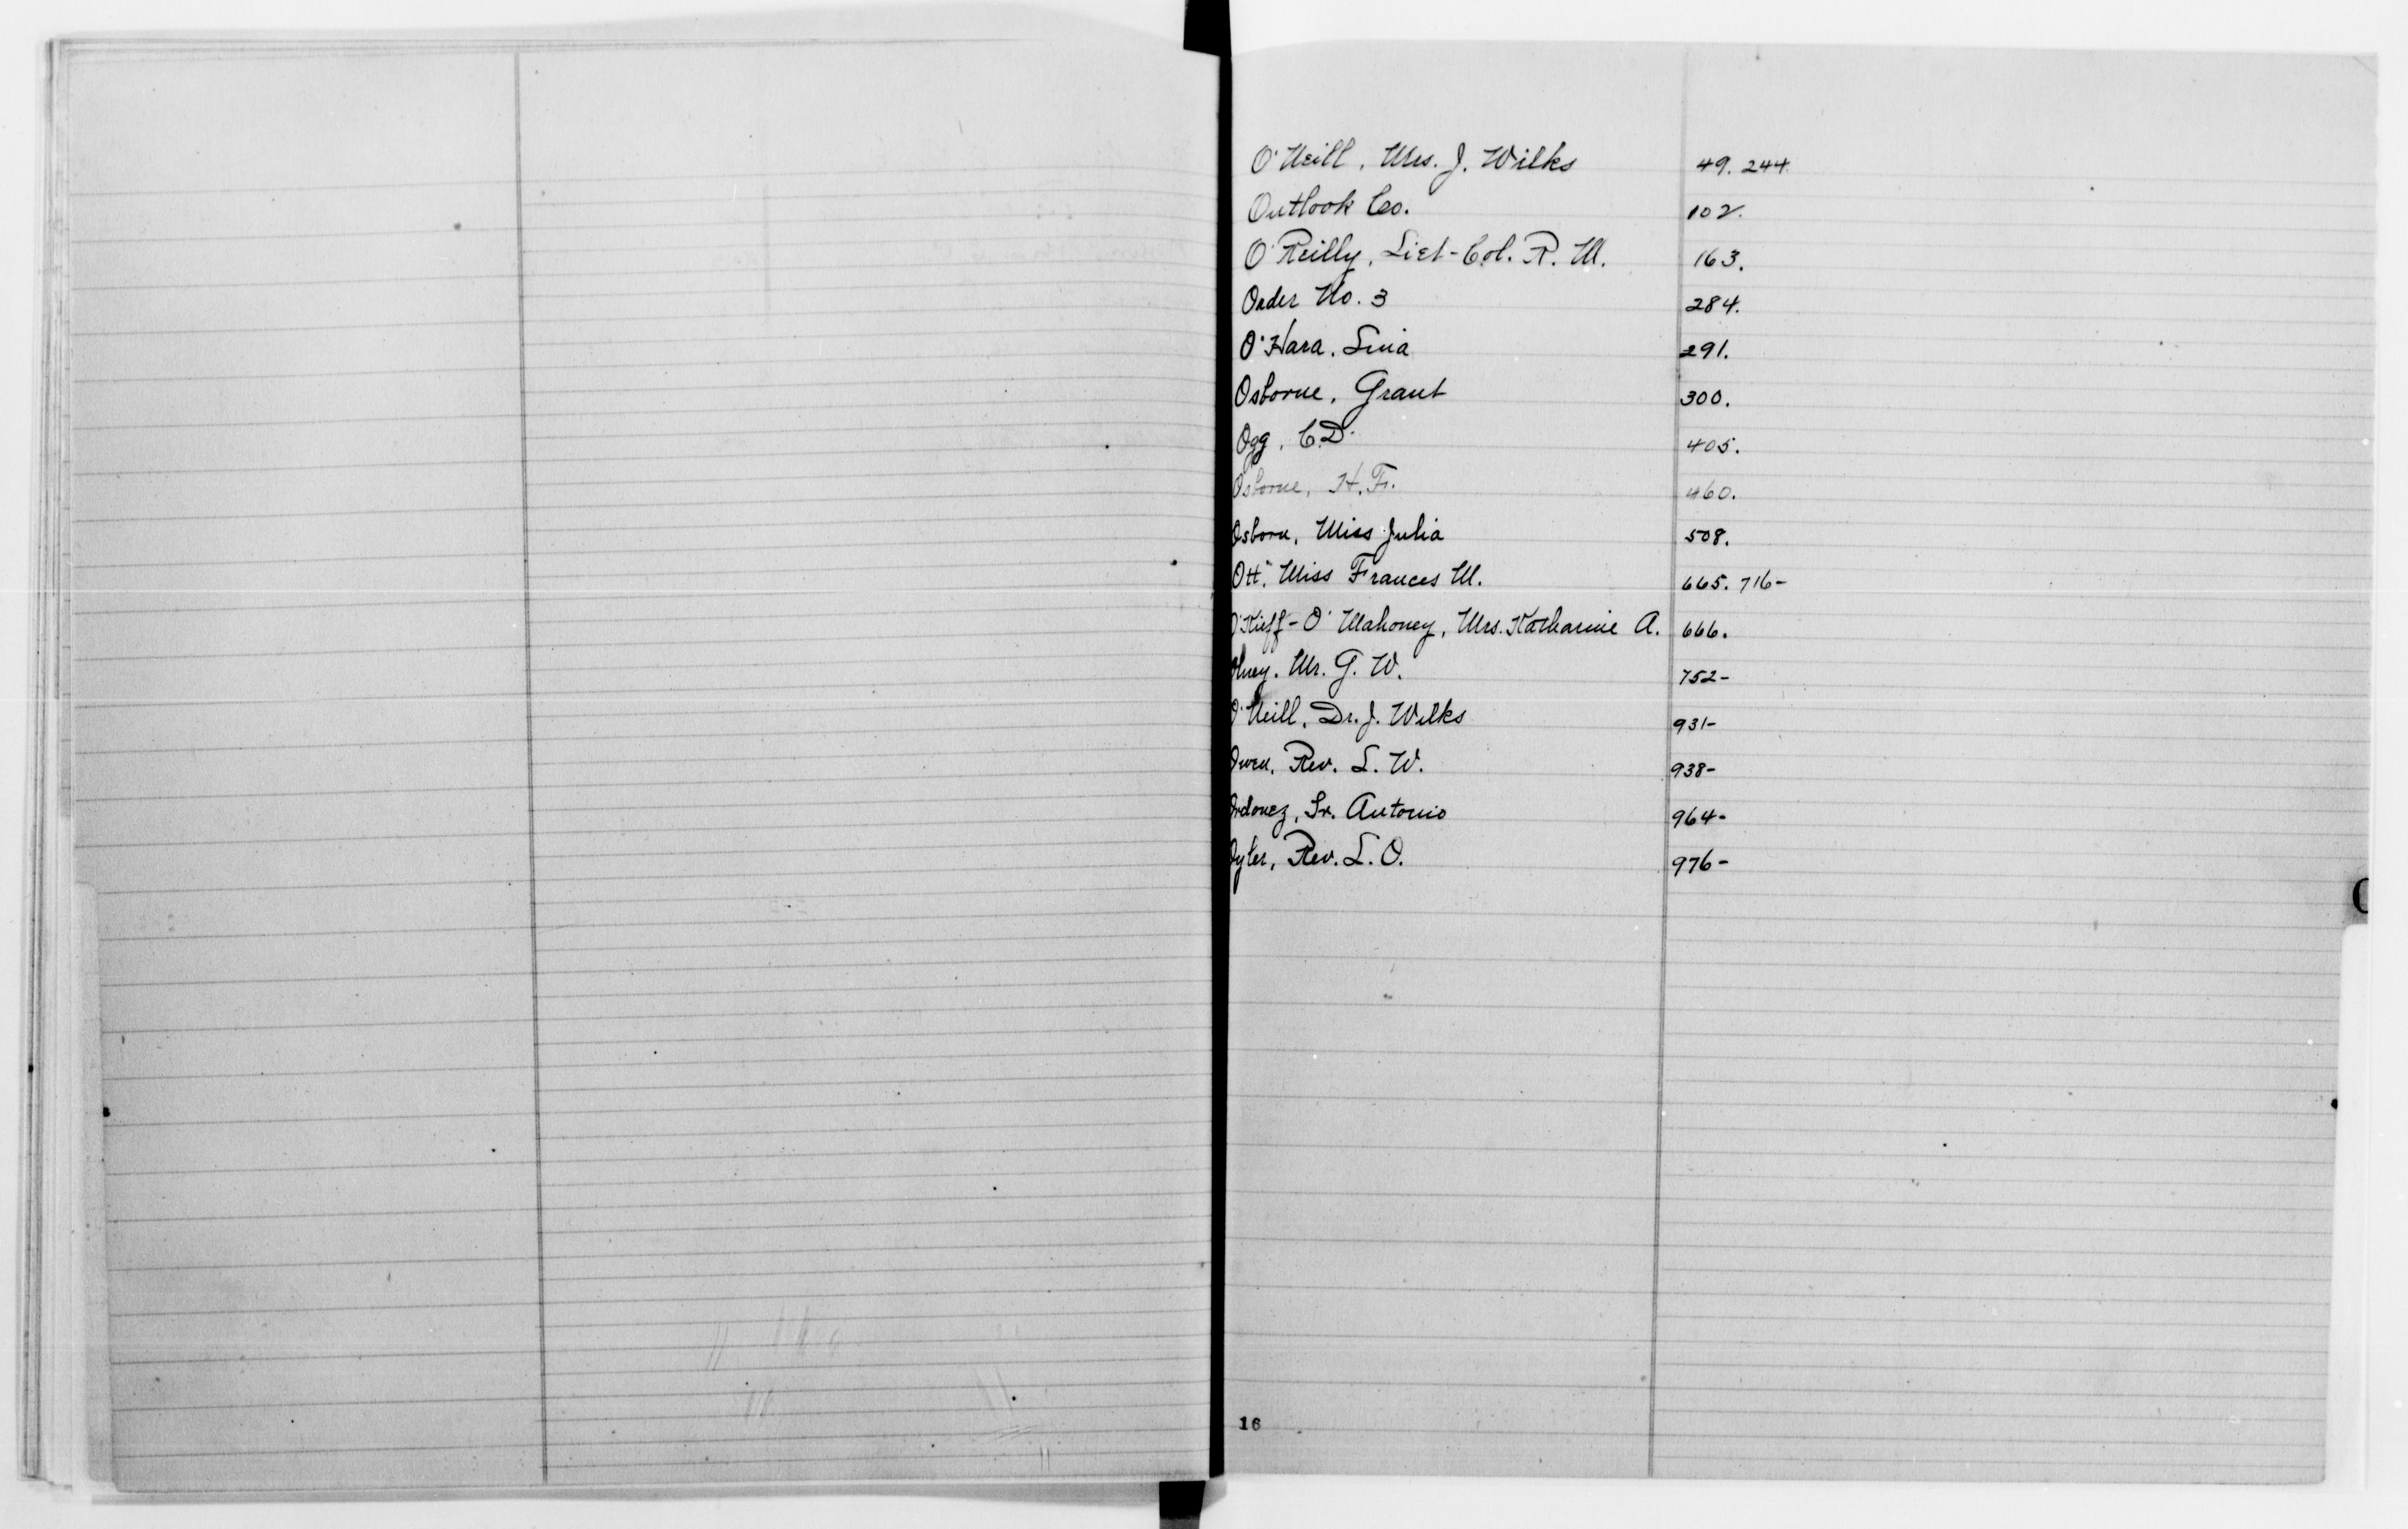 O'Neill, Mrs. J. Wilks 49. 244
Outlook Co. 102.
O'Reilly, Liet-Col. R. M. 163.
Order No. 3 284.
O'Hara, Lina 291.
Osborne, Grant 300.
Ogg, C.D. 405.
Osborne, H.F. 460.
Osborn, Miss Julia 508.
Ott, Miss Frances M. 665. 716-
O'Kieff-O'Mahoney, Mrs. Katharine A. 666.
Olney, Mr. G. W. 752-
O'Neill, Dr. J. Wilks 931-
Owen, Rev. L. W. 938-
Ordonez, Sr. Antonio 964-
Oyler, Rev. L. O. 976-
16